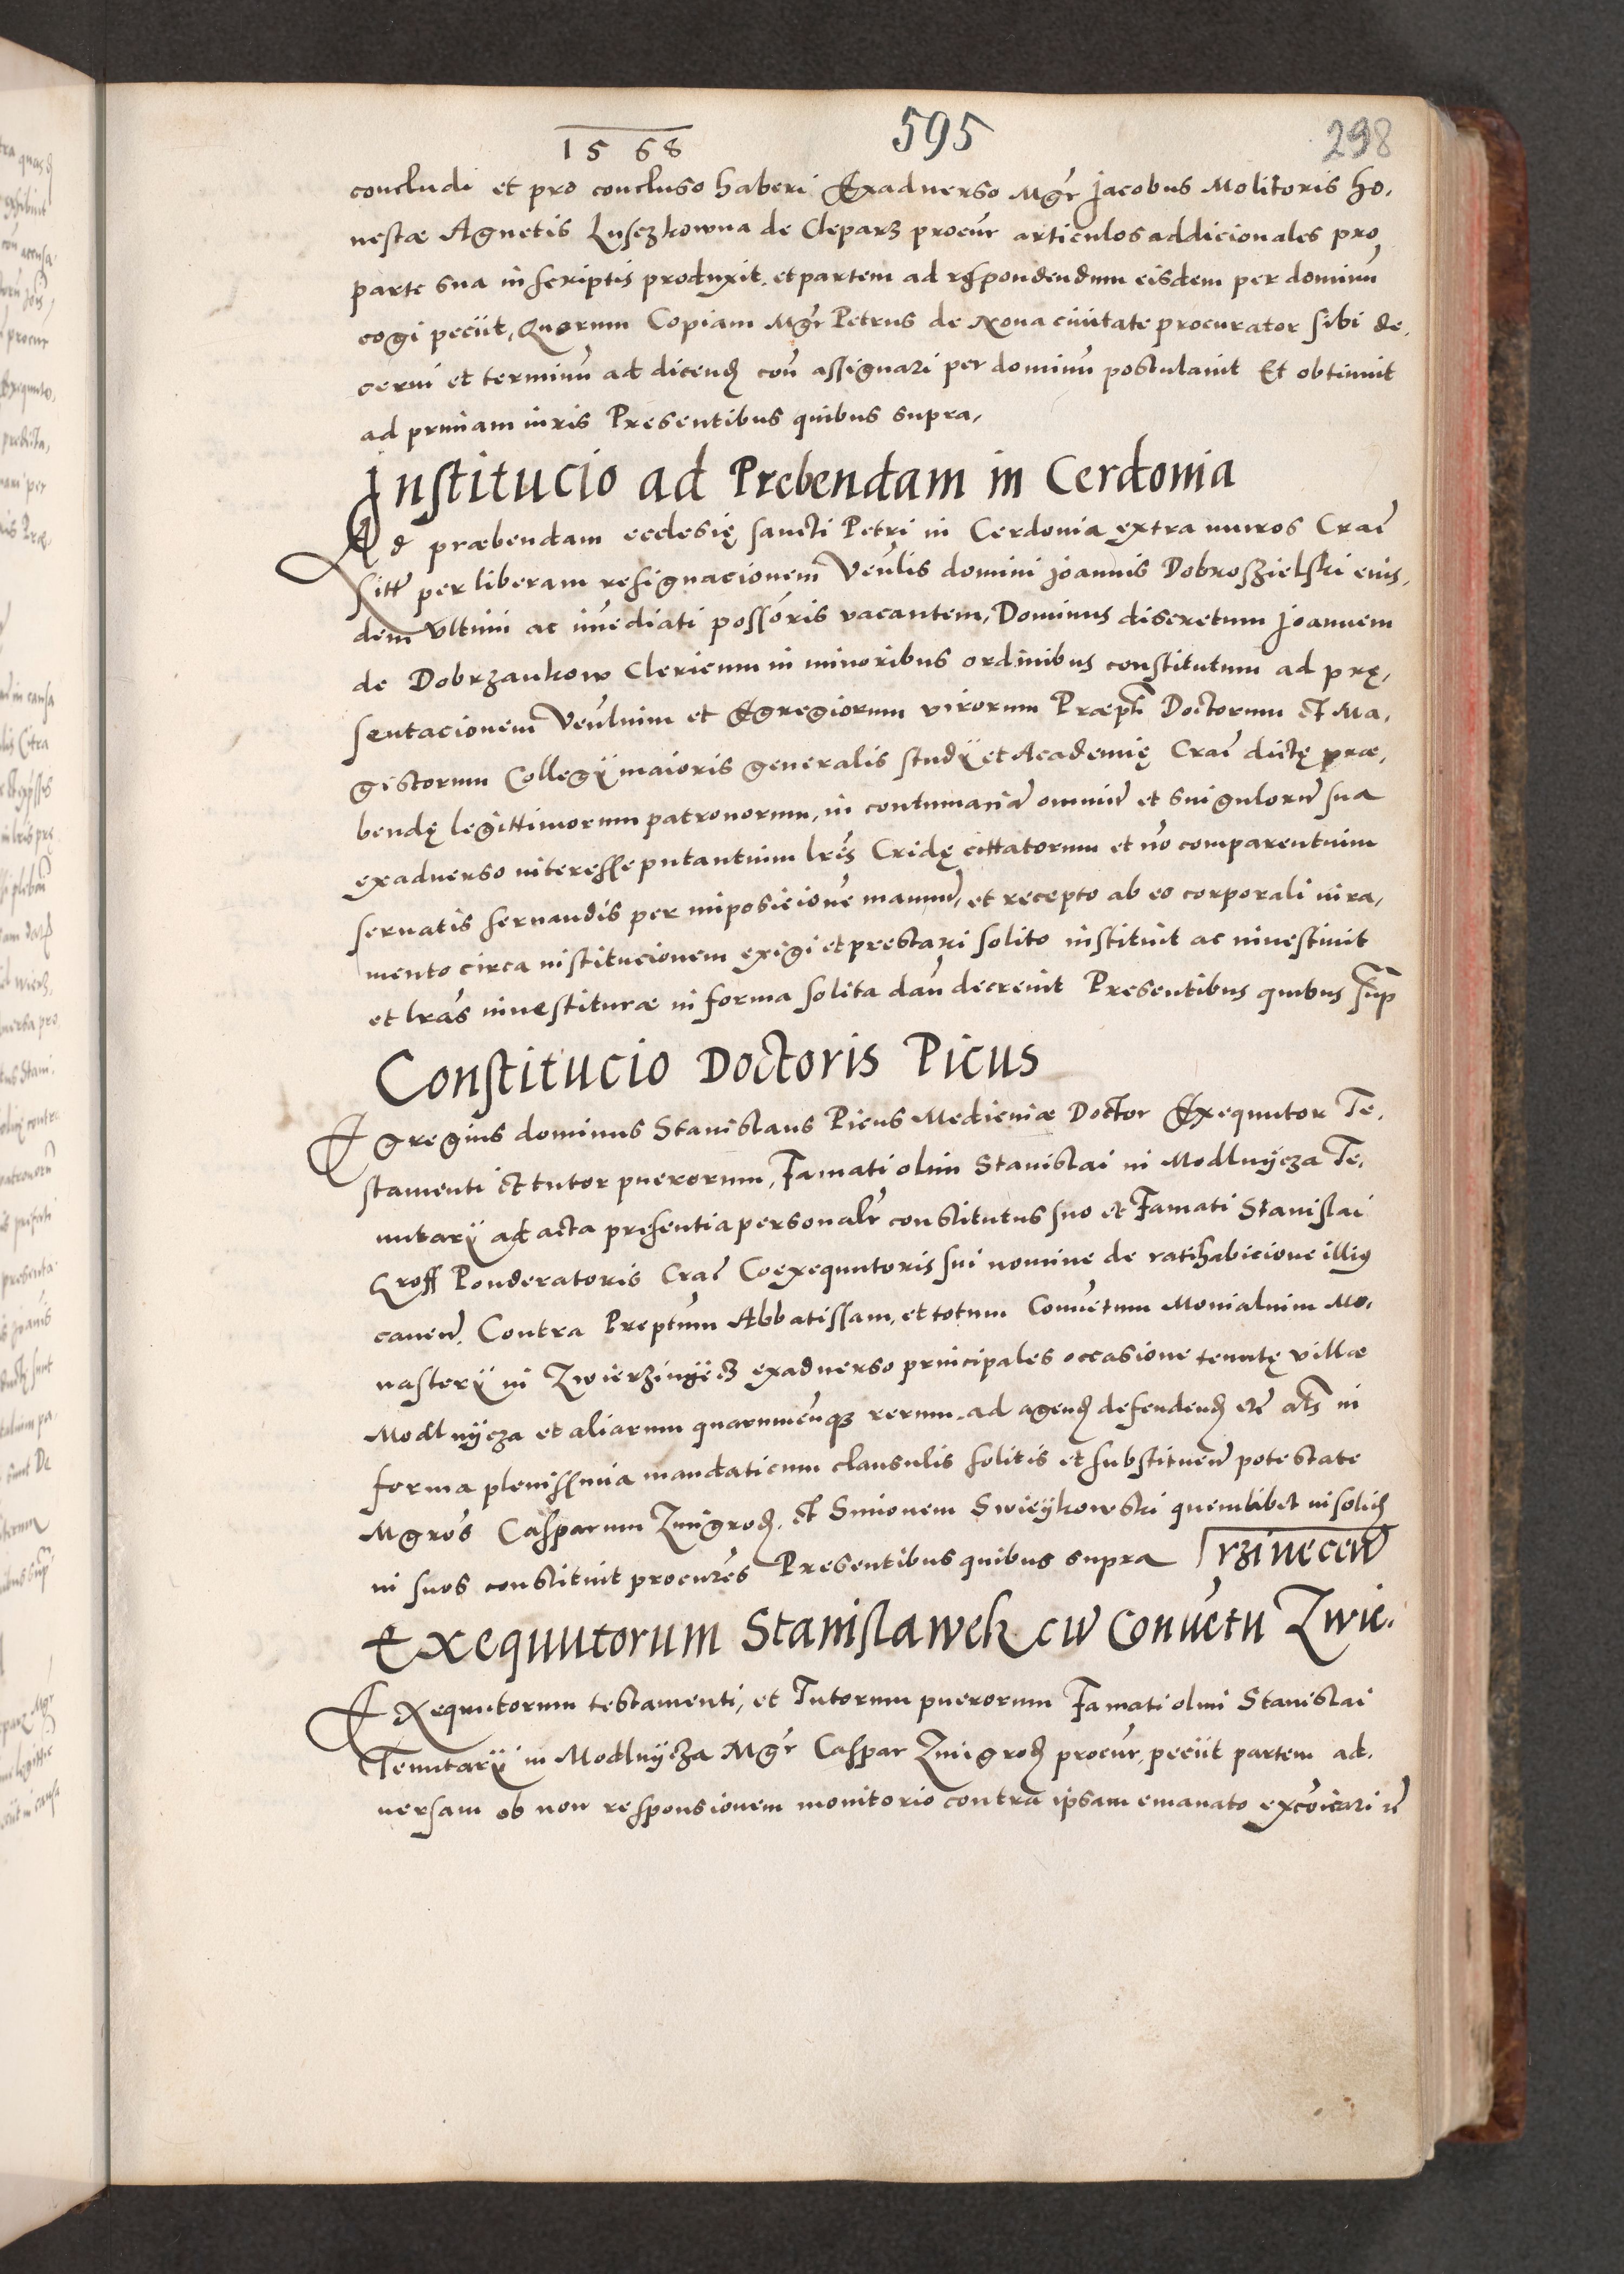 1568
595
298
concludi et pro concluso haberi Exaduerso Mgr Jacobus Molitoris ho,
nestæ Agnetis Lusczkowna de Cleparz procur articulos addicionales pro
parte sua in scriptis produxit, et partem ad respondendum eisdem per dominū
cogi peciit, Quorum Copiam Mgr Petrus de Noua ciuitate procurator sibi de,
cerni et terminū ad dicend con assignari per dominū postulauit Et obtinuit
ad primam iuris Presentibus quibus supra,
Institucio ad Prebendam in Cerdonia
Ad præbendam ecclesię sancti Petri in Cerdonia extra muros Crac
sitt per liberam resignacionem Venlis domini Joannis Dobroszielski eius,
dem vltimi ac imediati possoris vacantem, Dominus discretum Joannem
de Dobrzankow Clericum in minoribus ordinibus constitutum ad prę,
sentacionem Venluim et Egregiorum virorum Præpti Doctorum et Ma,
gistrorum Collegij maioris generalis studij et Academię Crac dictę præ,
bendę legittimorum patronorum, in contumaciā omniū et singulorū sua
exaduerso interesse putantuim lrēs Cridę cittatorum et nō comparentuim
seruatis seruandis per imposicionē manuū, et recepto ab eo corporali iura,
mento circa institucionem exigi et prestari solito instituit ac inuestiuit
et lrās inuestituræ in forma solita dan decreuit Presentibus quibus sup
Constitucio Doctoris Picus
Egregius dominus Stanislaus Picus Medicinæ Doctor Exequutor Te,
stamenti et tutor puerorum, Famati olim Stanislai in Modlnycza Te,
nutarij ad acta presentia personalr constitutus suo et Famati Stanislai
Groff Ponderatoris Crac Coexequutoris sui nomine de ratihabicione illius
cauen. Contra Preptum Abbatissam, et totum Conuētum Monialuim Mo,
nasterij in Zwierzinyecz exaduerso principales occasione tenutę villæ
Modlnycza et aliarum quarumcunque rerum, ad agend defendend etc acts in
forma plenissima mandaticum clausulis solitis et substituen potestate
Mgros Casparum Zmigrod, et Simonem Swieykowski quemlibet insolid
in suos constituit procures Presentibus quibus supra
rzinecen
Exequutorum Stanislawek cū Conuētu Zwie,
Exequutorum testamenti, et Tutorum puerorum Famati olim Stanislai
Tenutarij in Modlnycza Mgr Caspar Zmigrod procur, peciit partem ad,
uersam ob non responsionem monitorio contra ipsam emanato excōicari